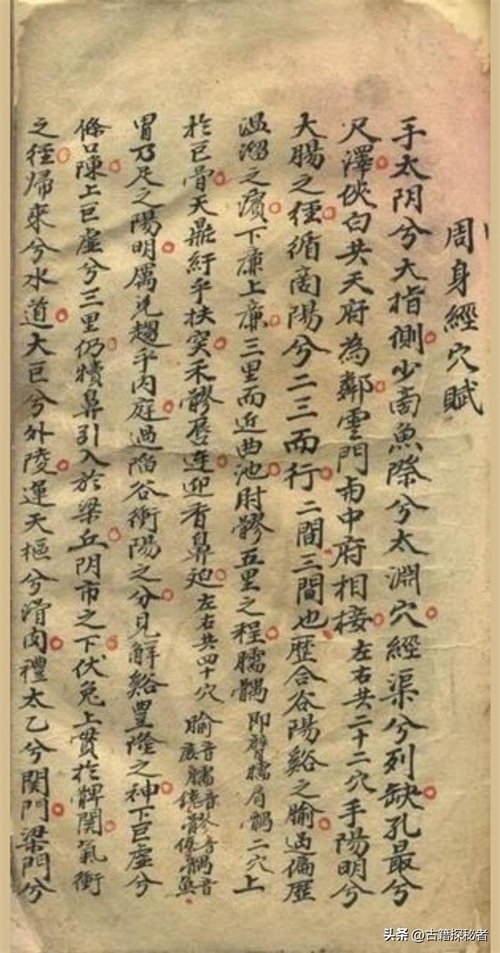 周身經穴賦
手太阴兮大指側少商魚際兮太淵穴經渠兮列缺孔最兮
尺澤俠白共天府為鄰雲門与中府相接左右共二十二穴手陽明兮
大腸之徑循商陽兮二三而行二間三間也歷合谷陽谿之腧過偏歷
温溜之濱下廉上廉三里而近曲池肘髎五里之程臑髃即臂臑肩髃二穴上
於巨骨天鼎紆乎扶突禾髎唇连迎香鼻迫左右共四十穴腧音臑音髎音髃音
胃乃足之陽明厲兌趨乎内庭過陷谷衝陽之分見解谿豐隆之神下巨虚兮
條口陳上巨虚兮三里仍犢鼻引入於梁丘阴市之下伏兔上贯於髀関氣衝
之徑歸來兮水道大巨兮外陵運天樞兮滑肉禮太乙兮関門梁門兮
头条 @古籍探秘者